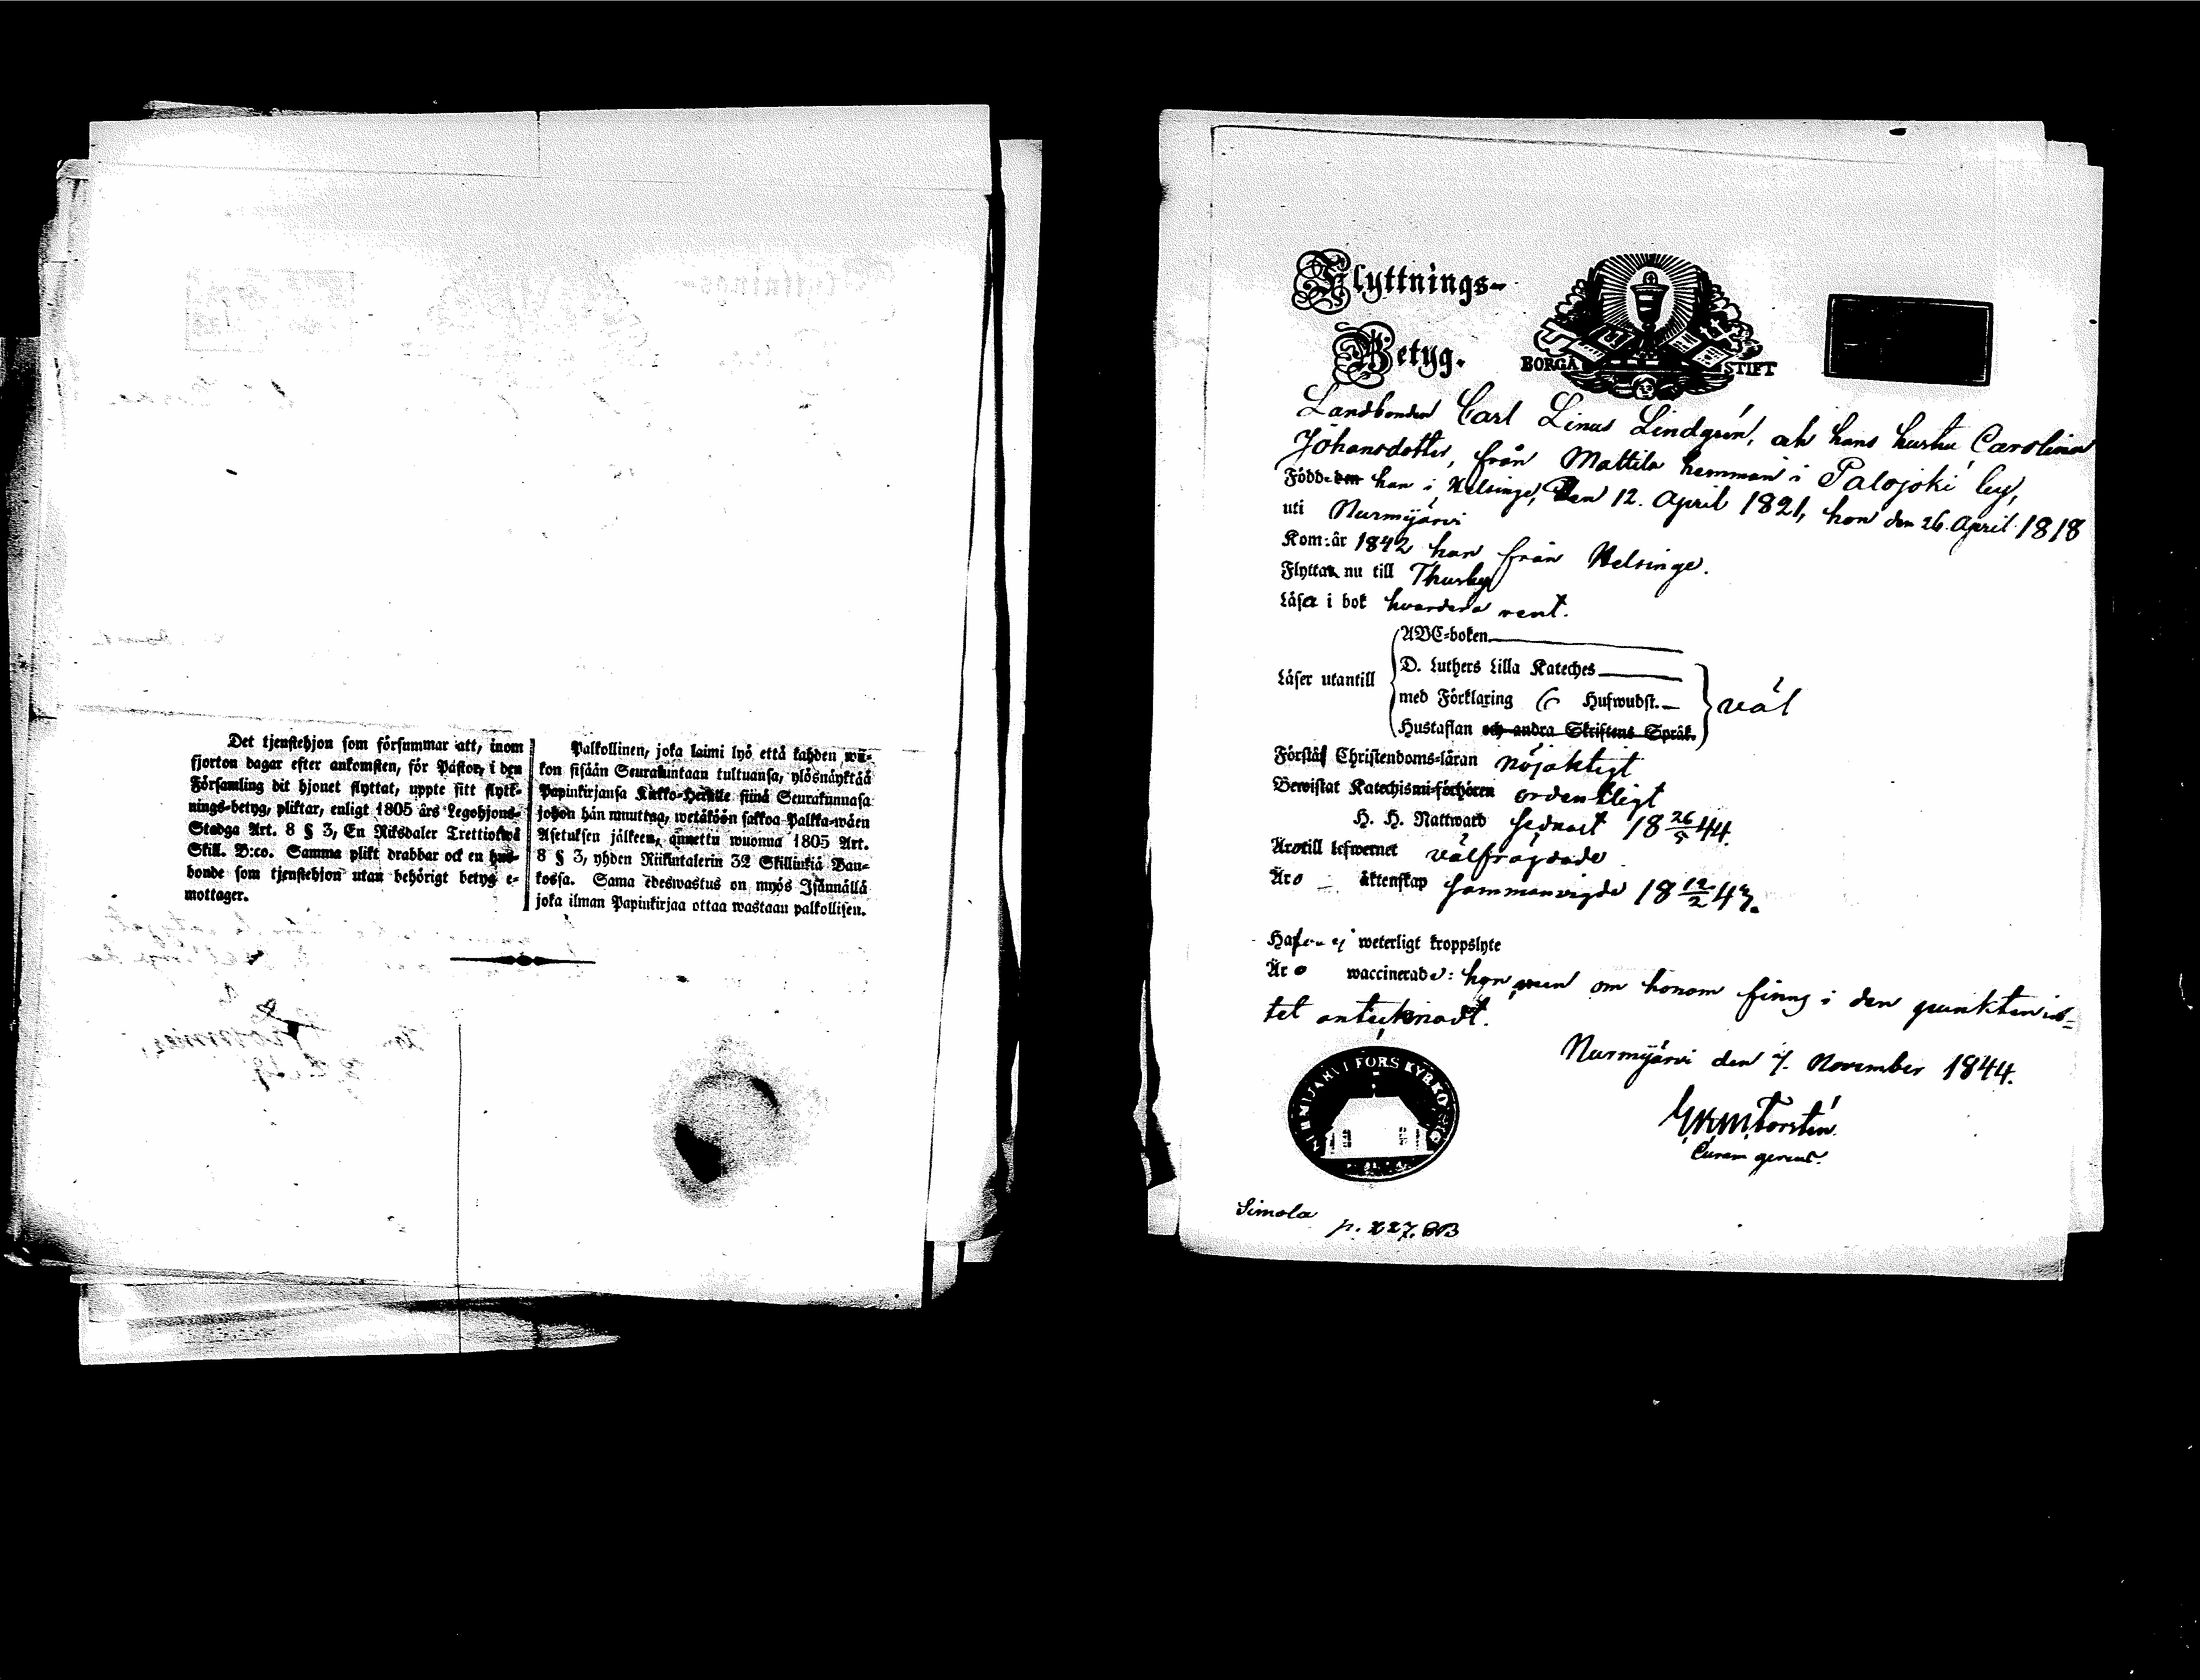 Det tjenstehjon som försummar att, inom
fjorton dagar efter ankomsten, för Pastor, i den
Församling dit hjonet flyttat, uppte sitt flytt-
nings-betyg, pliktar, enligt 1805 års Legohjons-
Stadga Art. 8 § 3, En Riksdaler Trettiotwå
Skill. B:co. Samma plikt drabbar ock en hus-
bonde som tjenstehjon utan behörigt betyg e-
mottager.
Palkollinen, joka laimi lyö että kahden wii-
kon sisään Seurakuntaan tultuansa, ylösnäyttää
Papinkirjansa Kirkko-Herralle siinä Seurakunnasa
johon hän muuttaa, wetäköön sakkoa Palkka-wäen
Asetuksen jälkeen, annettu wuonna 1805 Art.
8 § 3, yhden Riikintalerin 32 Skillinkiä Ban-
kossa. Sama edeswastus on myös Isännällä
joka ilman Papinkirjaa ottaa wastaan palkollisen.
Flyttnings-
Betyg.
BORGÅ STIFT
Landbonden Carl Linus Lindgrén, och hans hustru Carolina
Johansdotter, från Mattila hemman i Palojoki by,
Född den han i Helsinge, den 12. April 1821, hon den 26. April 1818
uti Nurmijärvi
Kom: år 1842 han från Helsinge.
Flyttar nu till Thusby
Läsa i bok hvardera rent.
ABC-boken
D. Luthers Lilla Kateches
Läser utantill med Förklaring 6 Hufwudst. väl
Hustaflan och andra Skriftens Språk.
Förstå Christendoms-läran nöjaktigt
Bewistat Katechismi-förhören ordentligt
H. H. Nattward sednast 18 26/5 44.
Äro till lefwernet välfrägdade
Äro äktenskap sammanvigde 18 12/2 43.
Hafva ej weterligt kroppslyte
Äro waccinerade: hon, men om honom finns i den punkten in-
tet antecknadt.
Nurmijärvi den 7. November 1844.
NURMIJÄRVI FÖRS KYRKO
Curam gerens.
Simola
p. 227. BB